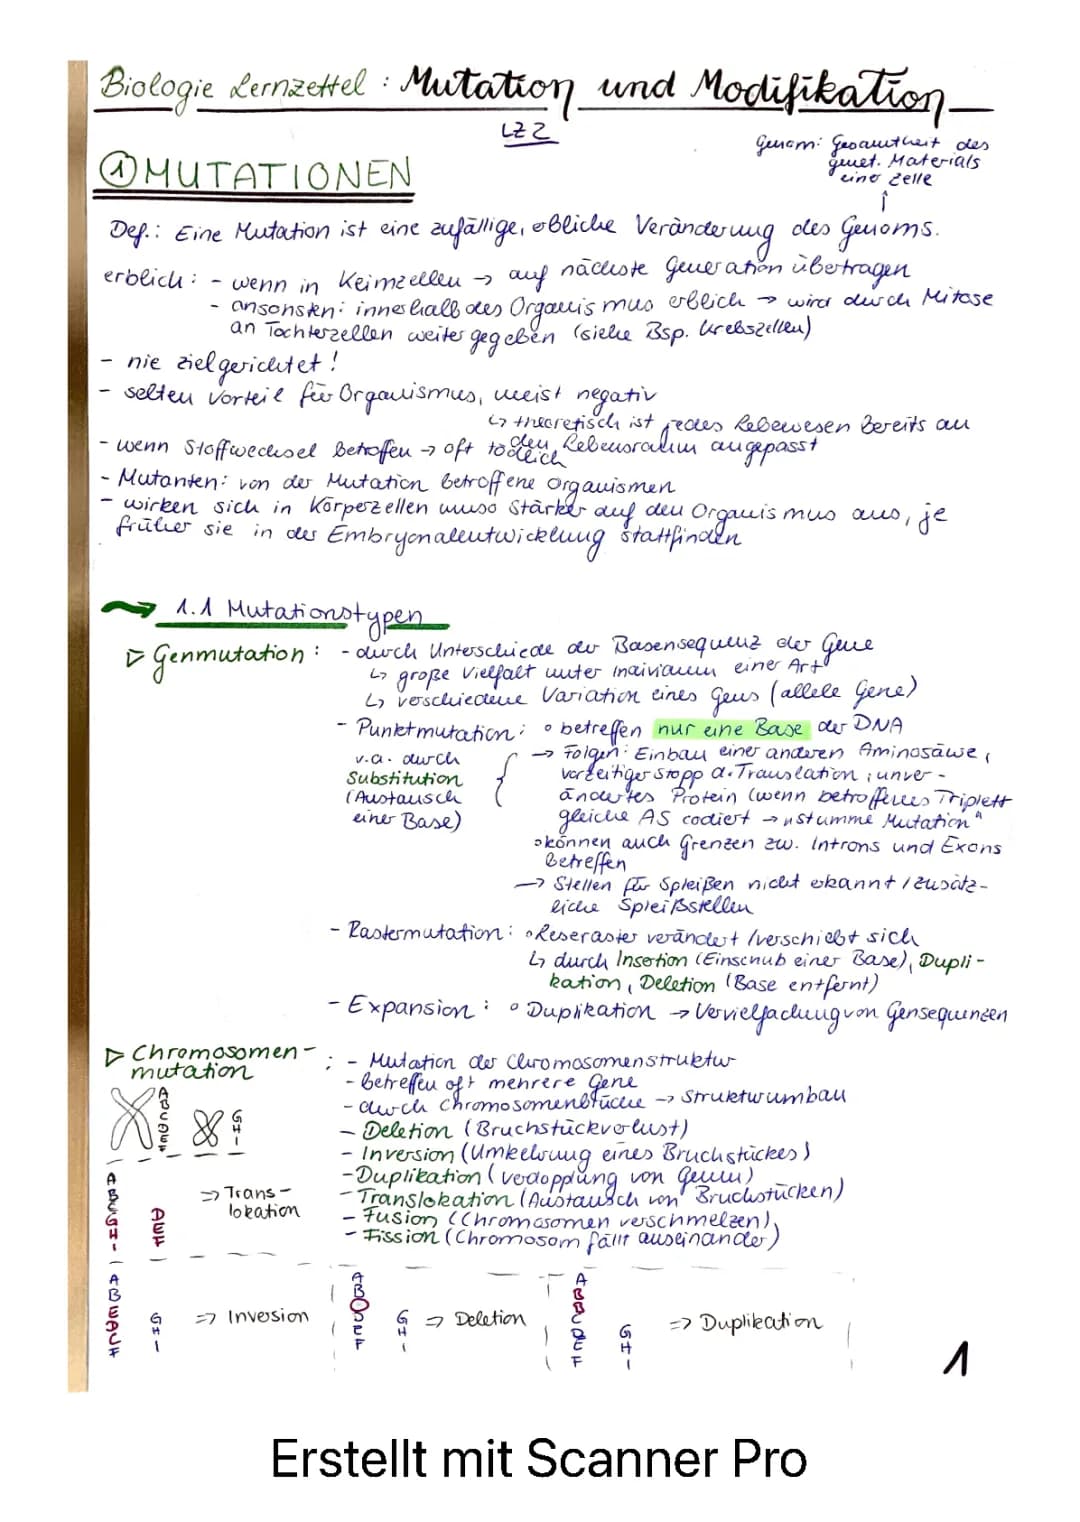 Biologie Lernzettel : Mutation und Modifikation
LZ 2
Genom: Gesamtheit des
genet. Materials
einer Zelle
① MUTATIONEN
Def.: Eine Mutation ist eine zufällige, erbliche Veränderung des Genoms.
erblich : - wenn in Keimzellen → auf nächste Generation übertragen
- ansonsten: innerhalb des Organismus erblich → wird durch Mitose
an Tochterzellen weitergegeben (siehe Bsp. Krebszellen)
- nie zielgerichtet !
- selten Vorteil für Organismus, meist negativ
↳ theoretisch ist jedes Lebewesen bereits an
den Lebensraum angepasst
- wenn Stoffwechsel betroffen → oft tödlich
- Mutanten: von der Mutation betroffene Organismen
- wirken sich in Körperzellen umso stärker auf den Organismus aus, je
früher sie in der Embryonalentwicklung stattfinden
1.1 Mutationstypen
▷ Genmutation : - durch Unterschiede der Basensequenz der Gene
↳ große Vielfalt unter Individuen einer Art
↳ verschiedene Variation eines Gens (allele Gene)
- Punktmutation : ∘ betreffen nur eine Base der DNA
v.a. durch
Substitution
(Austausch
einer Base)
→ Folgen: Einbau einer anderen Aminosäure,
vorzeitiger Stopp d. Translation, unver-
ändertes Protein (wenn betroffenes Triplett
gleiche AS codiert → "stumme Mutation"
∘ können auch Grenzen zw. Introns und Exons
betreffen
→ Stellen für Spleißen nicht erkannt / zusätz-
liche Spleißstellen
- Rastermutation : ∘ Leseraster verändert / verschiebt sich
↳ durch Insertion (Einschub einer Base), Dupli-
kation, Deletion (Base entfernt)
- Expansion : ∘ Duplikation → Vervielfachung von Gensequenzen
▷ Chromosomen-
mutation : - Mutation der Chromosomenstruktur
- betreffen oft mehrere Gene
- durch Chromosomenbrüche → Strukturumbau
- Deletion (Bruchstückverlust)
- Inversion (Umkehrung eines Bruchstückes)
- Duplikation (Verdopplung von Genen)
- Translokation (Austausch von Bruchstücken)
- Fusion (Chromosomen verschmelzen)
- Fission (Chromosom fällt auseinander)
ABCDEF GHI
ABCGHI DEF => Trans-
lokation
ABEDCF GHI => Inversion
GHI => Deletion
ABBCDEF GHI => Duplikation
1
Erstellt mit Scanner Pro